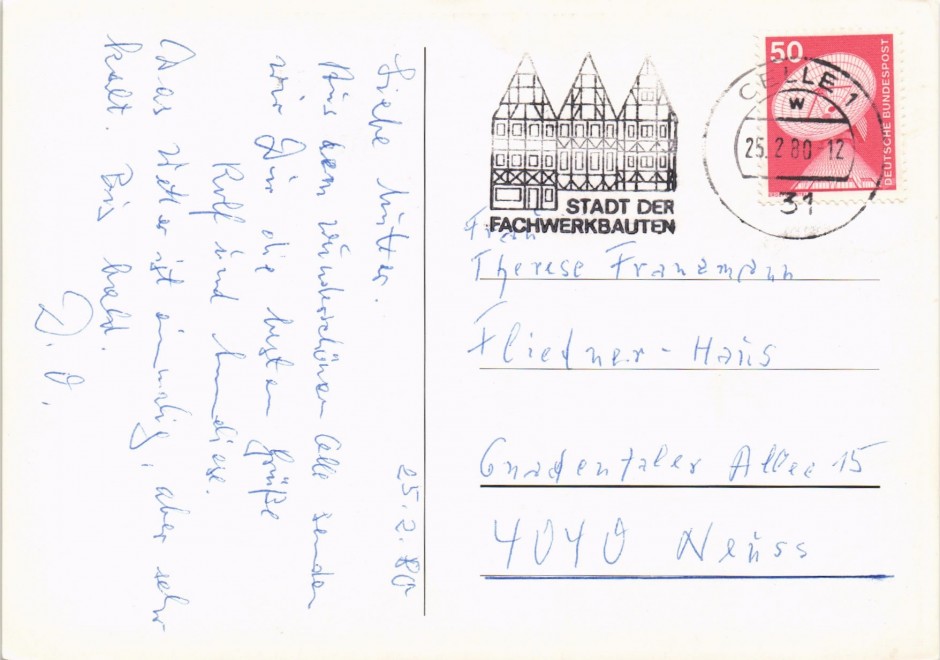 25.2.80
Liebe Mutter.
Aus dem wunderschönen Celle senden
wir Dir die besten Grüße
Rolf und
Das Wetter ist einmalig, aber sehr
kalt. Bis bald.
D. O.
STADT DER
FACHWERKBAUTEN
CELLE 1
w
25.2.80-12
31
50
DEUTSCHE BUNDESPOST
Frau
Therese Franzmann
Fliedner-Haus
Gnadentaler Allee 15
4040 Neuss